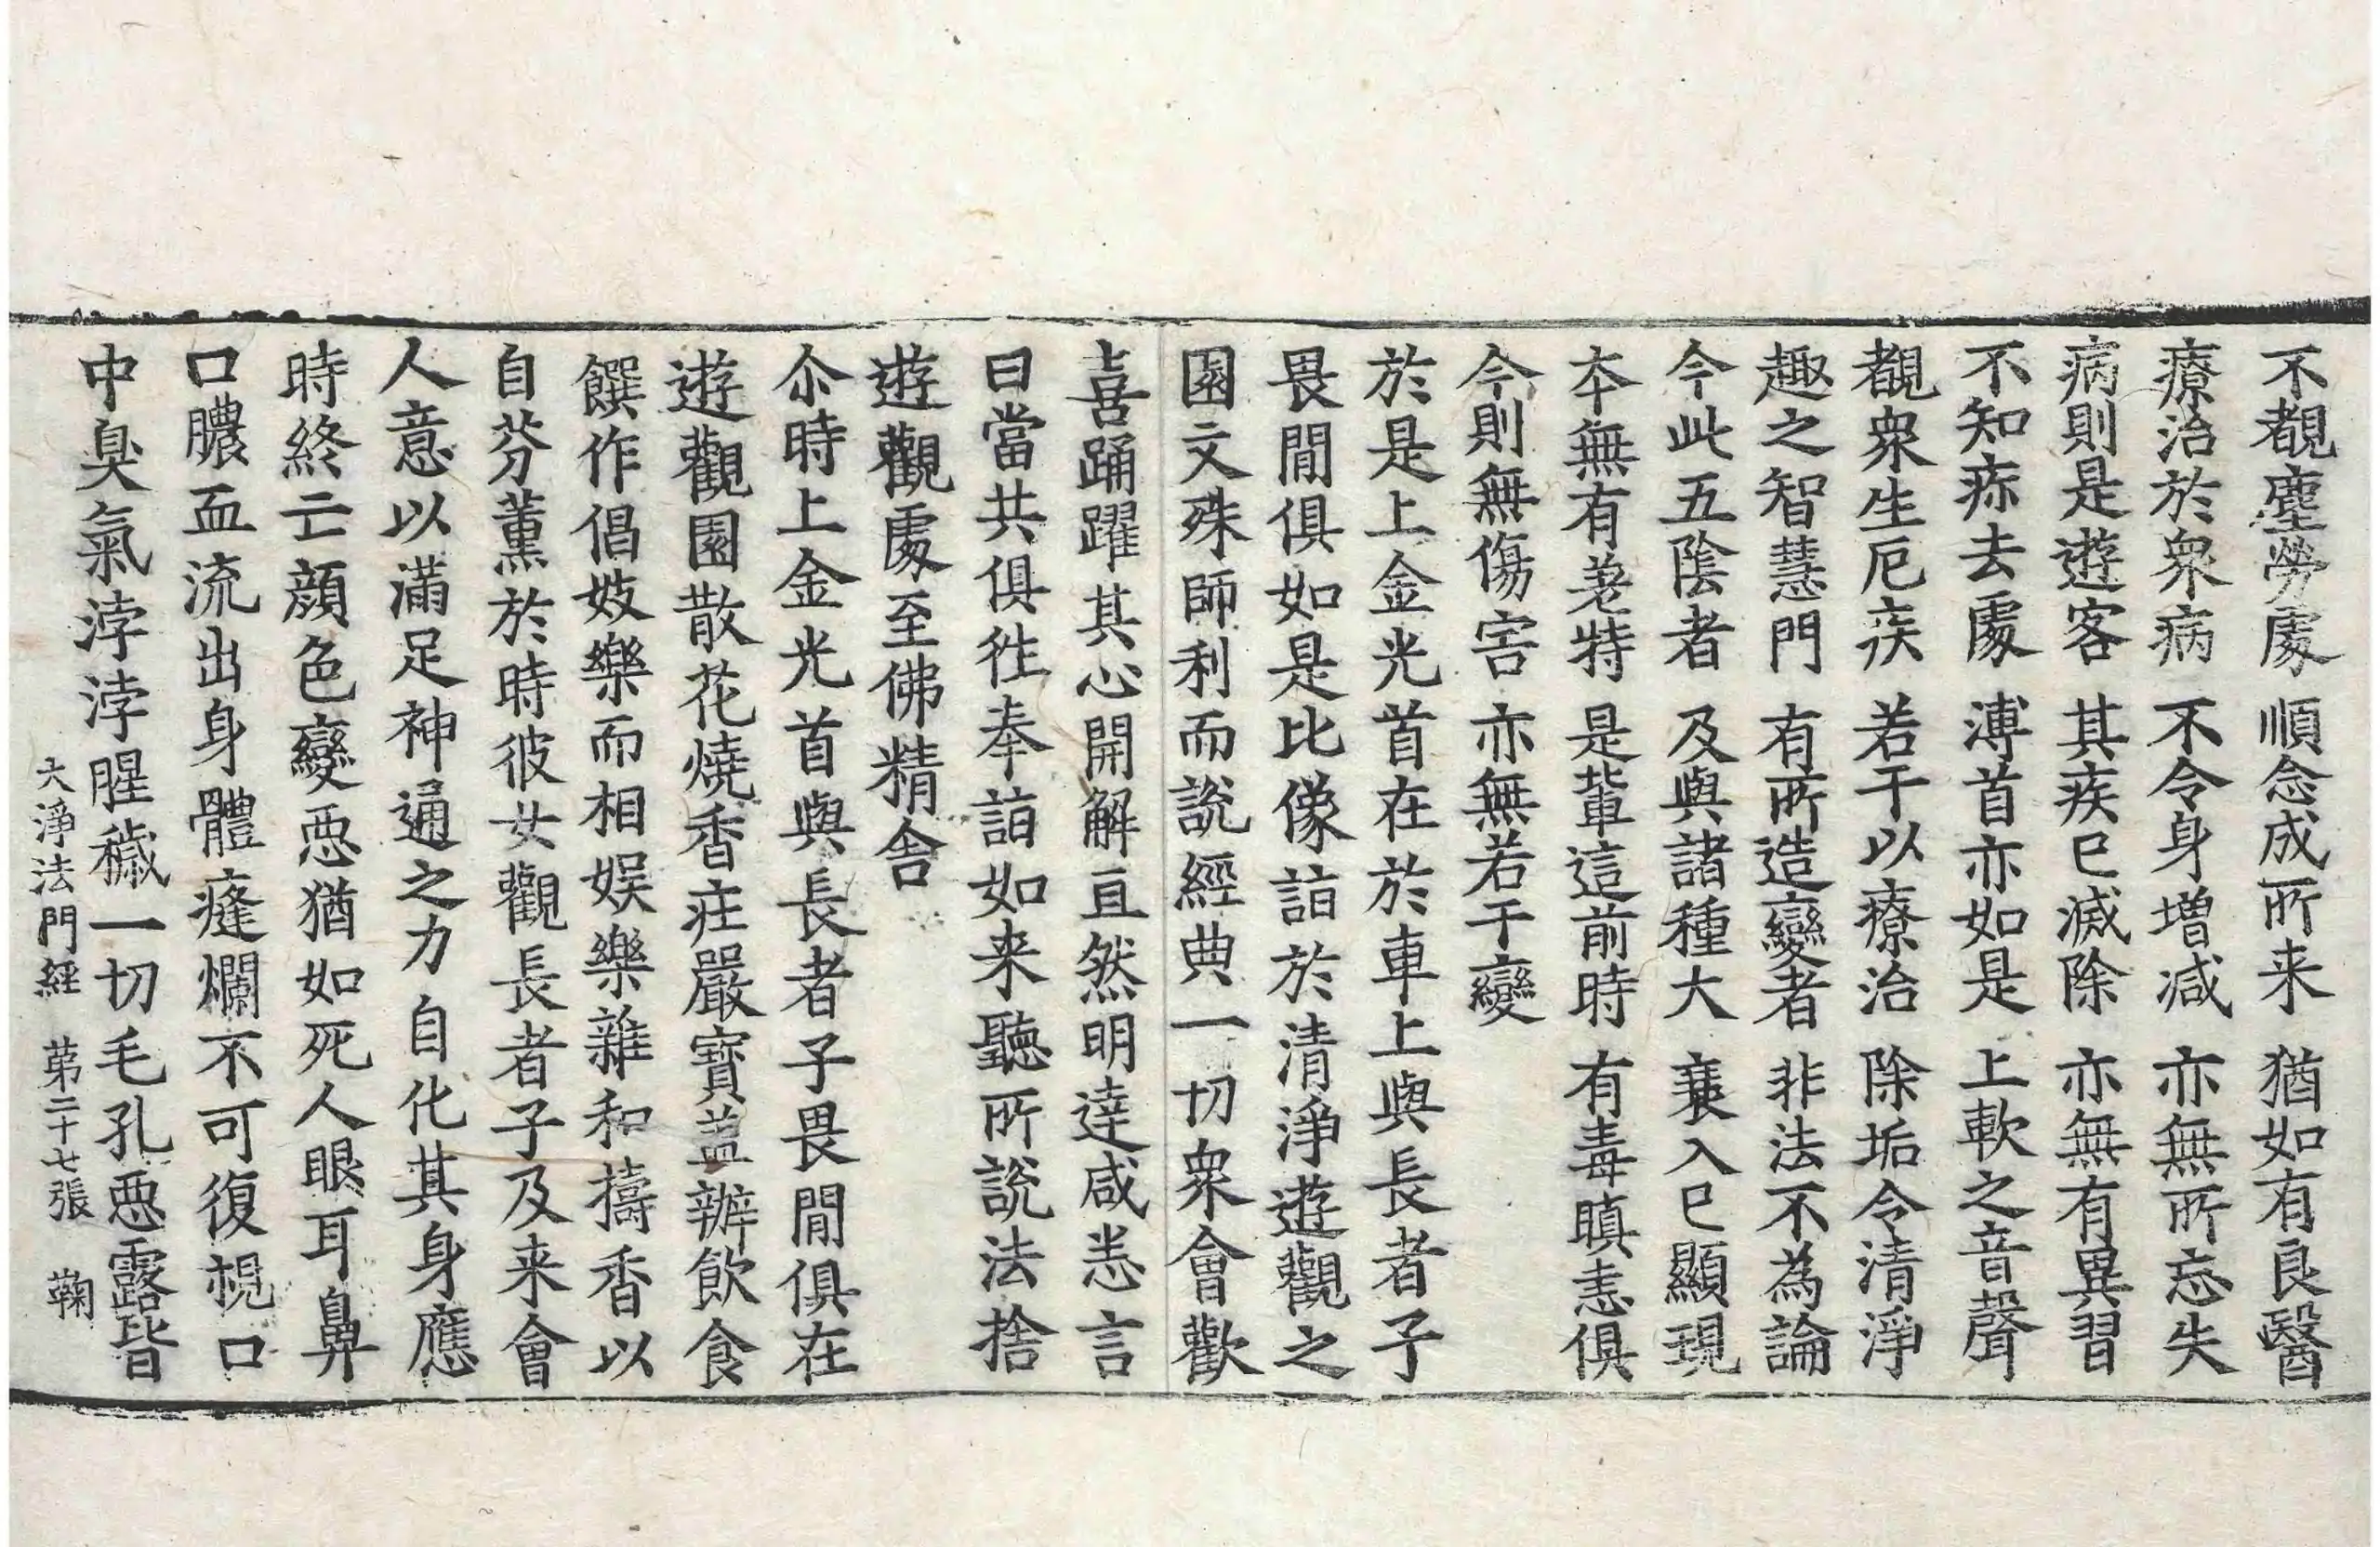 不覩塵勞處 順念成所来 猶如有良醫
療治於衆病 不令身増减 亦無所忘失
病則是遊客 其疾已滅除 亦無有異習
不知痳去處 溥首亦如是 上軟之音聲
覩衆生厄疾 若干以療治 除垢令清淨
趣之智慧門 有所造變者 非法不為論
今此五陰者 及與諸種大 衰入已顯現
本無有差特 是輩這前時 有毒瞋恚俱
今則無傷害 亦無若干變
於是上金光首在於車上與長者子
畏閒俱如是比像詣於清淨遊觀之
園文殊師利而說經典一切衆會歡
喜踊躍其心開解亘然明達咸恙言
曰當共俱徃奉詣如来聽所說法捨
遊觀處至佛精舍
尒時上金光首與長者子畏閒俱在
遊觀園散花燒香莊嚴寶盖辦飲食
饌作倡妓樂而相娛樂雜和擣香以
自芬薰於時彼女觀長者子及来會
人意以滿足神通之力自化其身應
時終亡顔色變惡猶如死人眼耳鼻
口膿血流出身體瘻爛不可復視口
中臭氣浡浡腥穢一切毛孔惡露皆
大淨法門経 苐二十七張 鞠